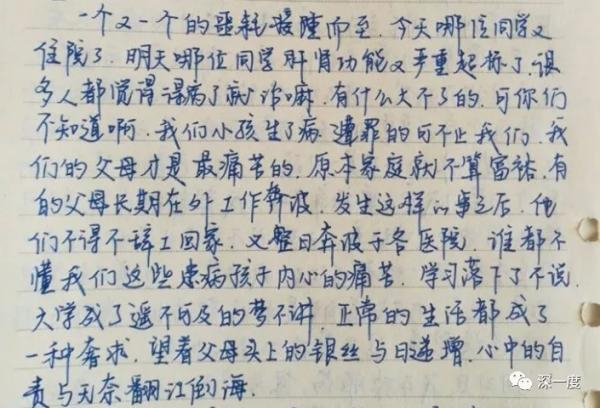 一个又一个的噩耗接踵而至.今天哪位同学又
住院了.明天哪位同学肝肾功能又严重超标了.很
多人都觉得得病了就治嘛.有什么大不了的.可你们
不知道啊.我们小孩生了病.遭罪的可不止我们.我
们的父母才是最痛苦的.原本家庭就不算富裕.有
的父母长期在外工作奔波.发生这样的事之后.他
们不得不辞工回家.又整日奔波于各医院.谁都不
懂我们这些患病孩子内心的痛苦.学习落下了不说.
大学成了遥不可及的梦不讲.正常的生活都成了
一种奢求.望着父母头上的银丝与日递增.心中的自
责与无奈翻江倒海.
深一度